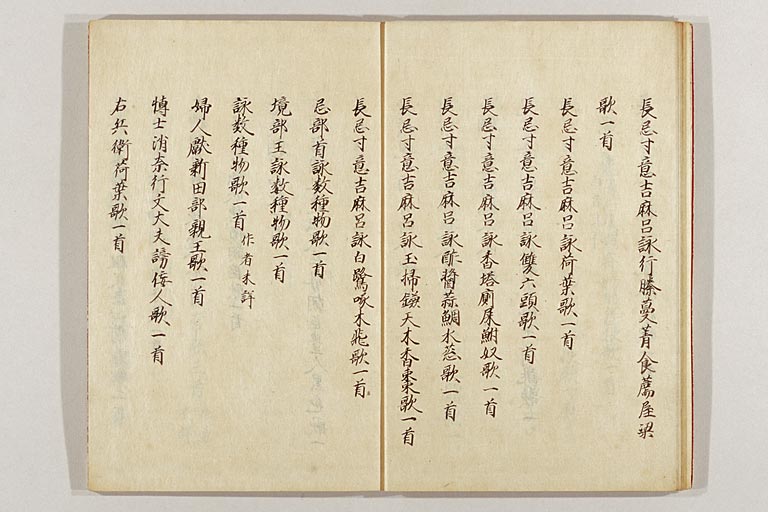 長忌寸意吉麻呂詠行騰蔓菁食薦屋梁
歌一首
長忌寸意吉麻呂詠荷葉歌一首
長忌寸意吉麻呂詠雙六頭歌一首
長忌寸意吉麻呂詠香塔厠屎鮒奴歌一首
長忌寸意吉麻呂詠酢醤蒜鯛水葱歌一首
長忌寸意吉麻呂詠玉掃鎌天木香棗歌一首
長忌寸意吉麻呂詠白鷺啄木飛歌一首
忌部首詠数種物歌一首
境部王詠数種物歌一首
詠数種物歌一首 作者未詳
婦人献新田部親王歌一首
博士消奈行文大夫謗佞人歌一首
右兵衛荷葉歌一首